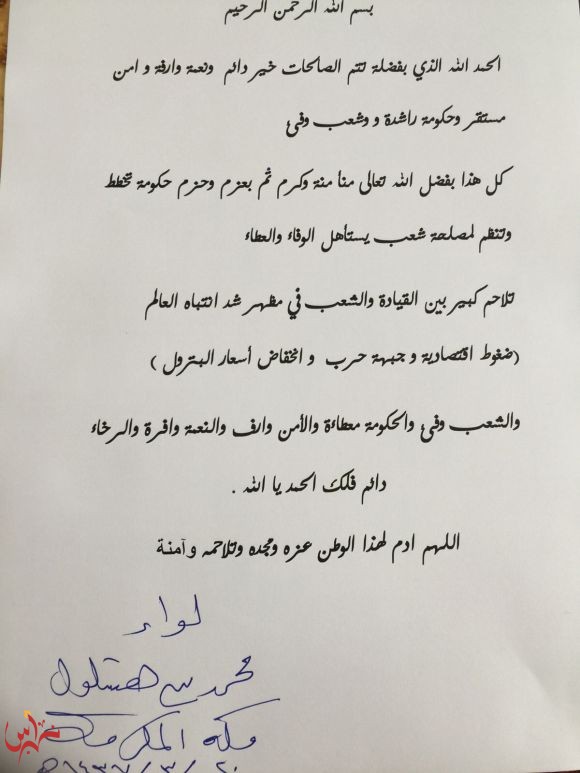 بسم الله الرحمن الرحيم
الحمد الله الذي بفضلة تتم الصالحات خير دائم ونعمة وارفة و امن
مستقر وحكومة راشدة و وشعب وفئ
كل هذا بفضل الله تعالى منأ منة وكرم ثم بعزم وحزم حكومة تخطط
وتنظم لمصلحة شعب يستأهل الوفاء والعطاء
تلاحم كبير بين القيادة والشعب في مظهر شد انتباه العالم
(ضغوط اقتصادية و جبهة حرب و انخفاض أسعار البترول )
والشعب وفئ والحكومة معطاءة والأمن وارف والنعمة وافرة والرخاء
دائم فلك الحمد يا الله .
اللهم ادم لهذا الوطن عزه ومجده وتلاحمه وآمنة
لواء
محمد بن هتلول
مكه المكرمة